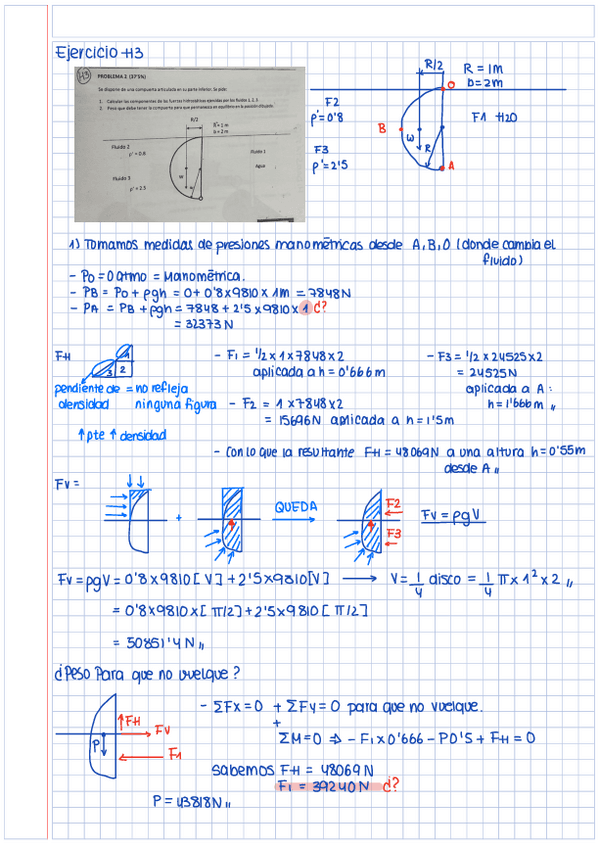 Ejercicio H3
H3
PROBLEMA 2 (37'5%)
Se dispone de una compuerta articulada en su parte inferior. Se pide:
1. Calcular las componentes de las fuerzas hidrostáticas ejercidas por los fluidos 1, 2, 3.
2. Peso que debe tener la compuerta para que permanezca en equilibrio en la posición dibujada.
R/2
R= 1 m
b = 2 m
Fluido 2
ρ' = 0.8
Fluido 1
Agua
Fluido 3
ρ' = 2.5
W
R
R/2
R = 1m
D = 2m
O
F2
ρ'=0'8
B
W
R
F1 H2O
F3
ρ'=2'5
A
1) Tomamos medidas de presiones manométricas desde A,B,O (donde cambia el
fluido)
- Po = 0 atmo = Manométrica.
- PB = Po + ρgh = 0 + 0'8x9810 x 1m = 7848N
- PA = PB + ρgh = 7848 + 2'5 x9810x 1 ¿?
= 32373 N
FH
1
3 2
pendiente de = no refleja
densidad ninguna figura
↑pte ↑ densidad
- F1 = 1/2 x 1 x 7848 x2
aplicada a h = 0'666m
- F2 = 1 x7848x2
= 15696N aplicada a h = 1'5m
- F3 = 1/2 x 24525x2
= 24525N
aplicada a A:
h = 1'666m
- Con lo que la resultante FH = 48069N a una altura h=0'55m
desde A
FV =
+
QUEDA
F2
F3
FV = ρgV
FV = ρgV = 0'8 x 9810[ V] + 2'5x9810[V] → V = 1/4 disco = 1/4 π x 1² x 2
= 0'8x9810x[ π/2] + 2'5x9810 [ π/2]
= 50851'4 N
¿Peso Para que no vuelque?
FH
FV
P
F1
- ΣFx = 0 + ΣFy = 0 para que no vuelque.
+
ΣM=0 ⇒ - F1x0'666 - P0'5 + FH = 0
sabemos FH = 48069 N
F1 = 39240 N ¿?
P = 43818N